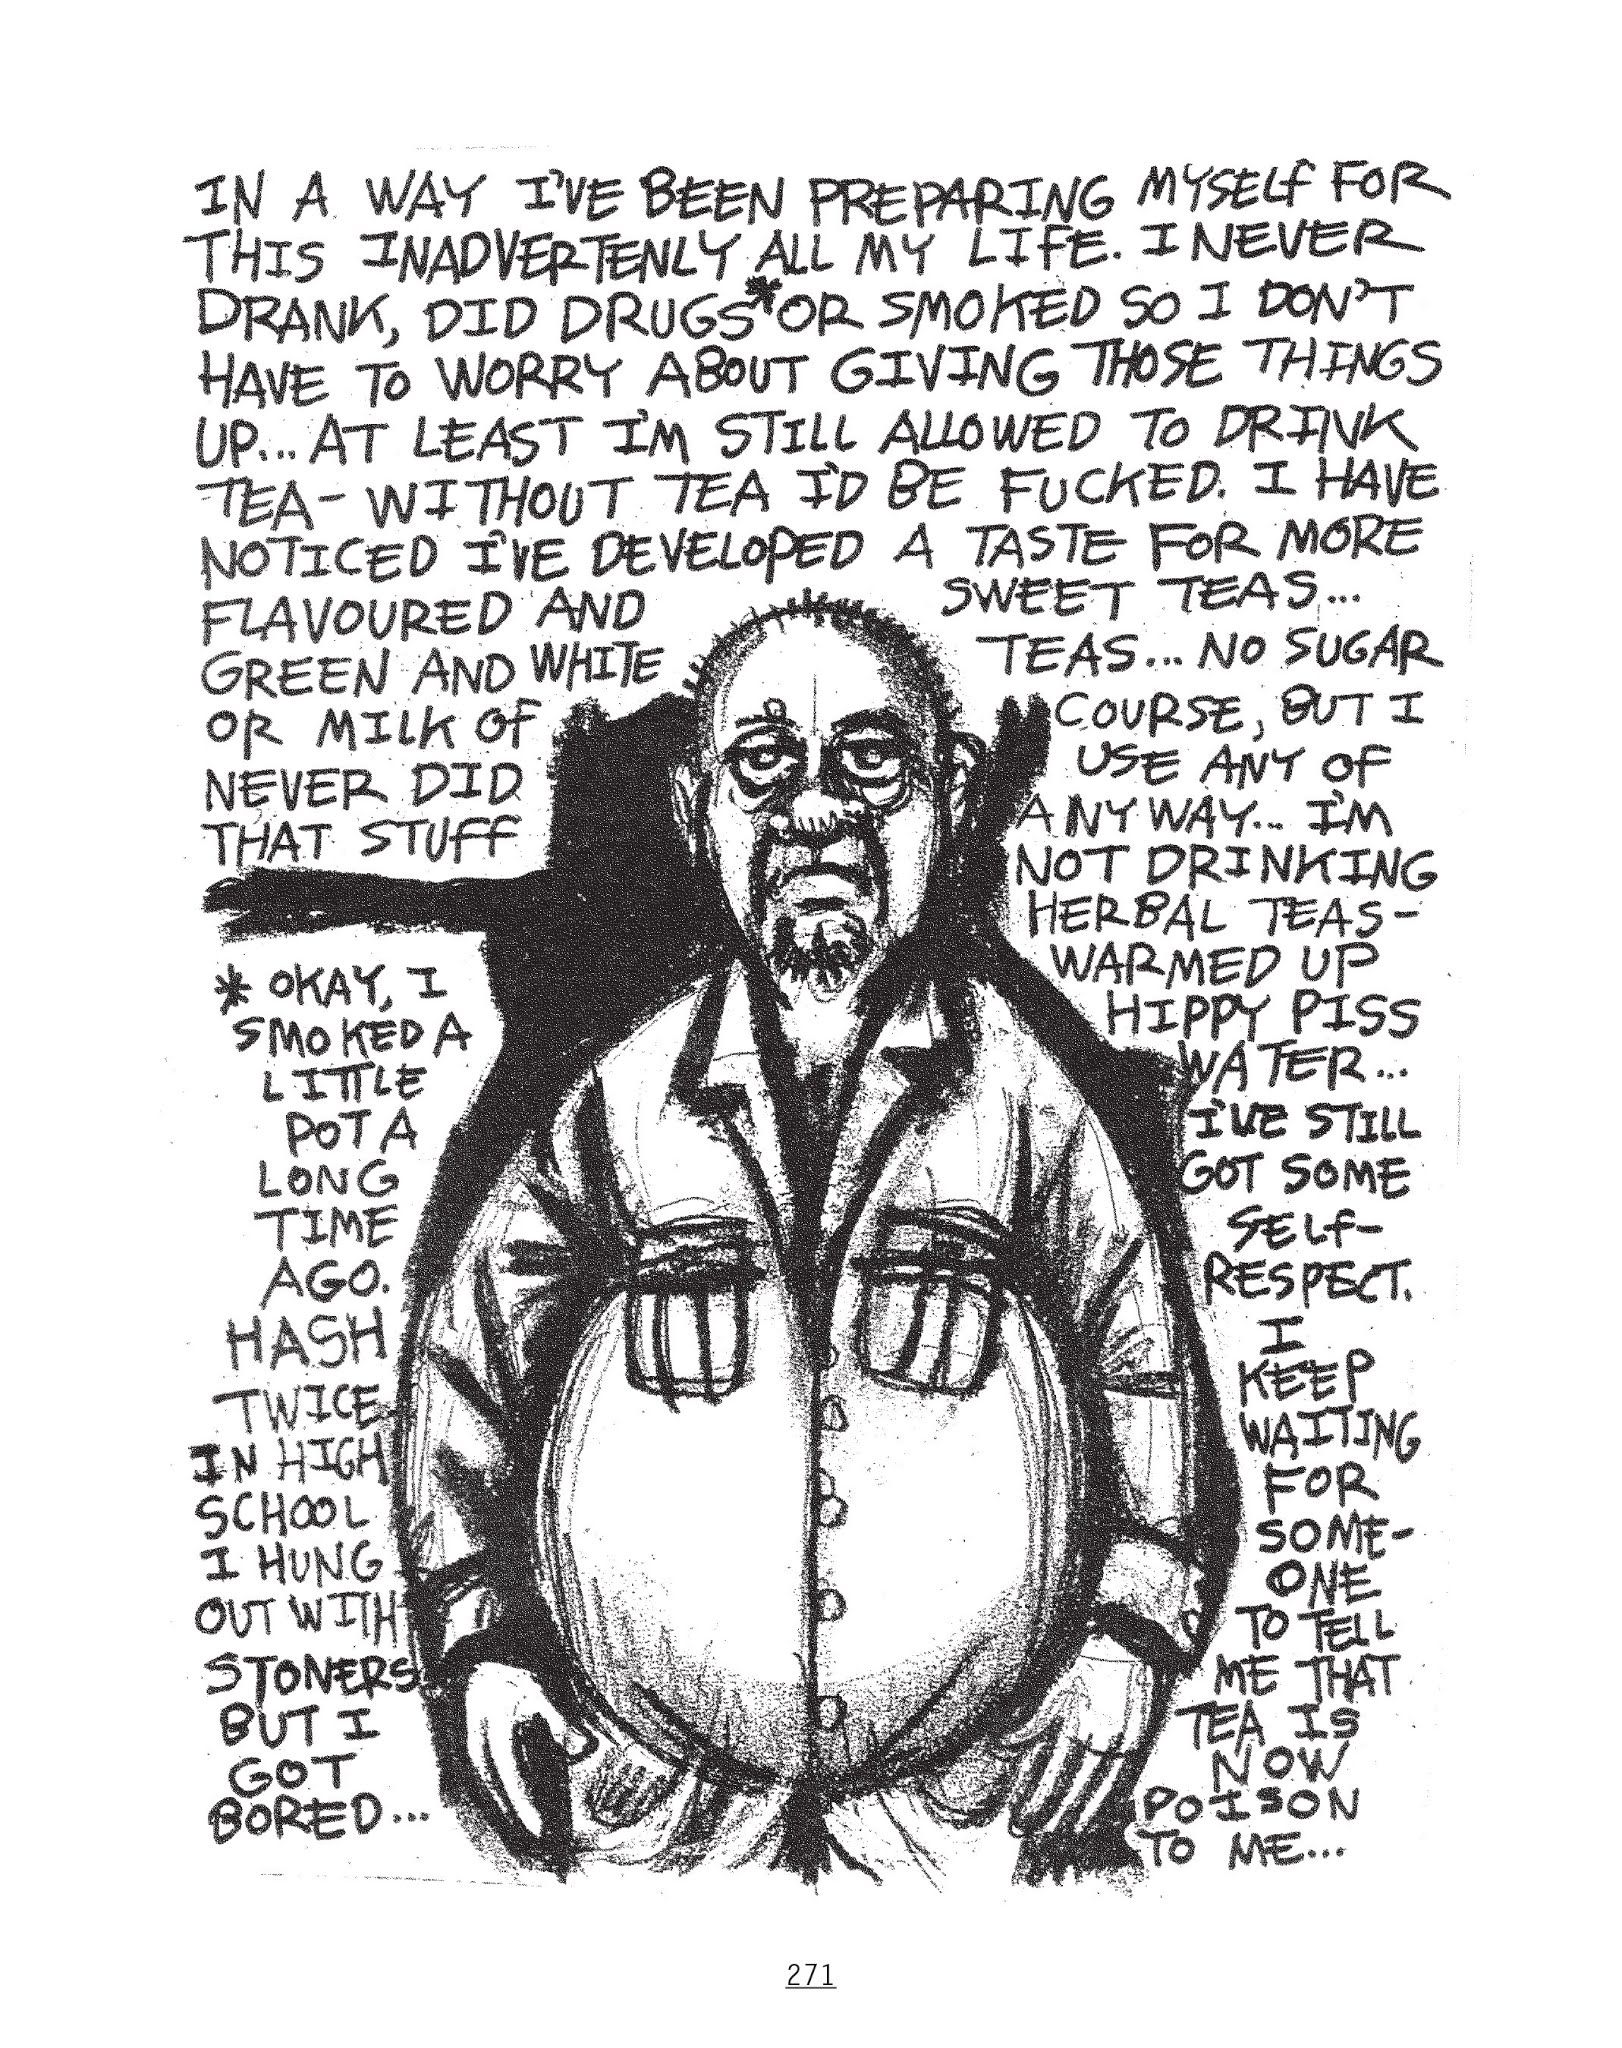 IN A WAY I'VE BEEN PREPARING MYSELF FOR
THIS INADVERTENLY ALL MY LIFE. I NEVER
DRANK, DID DRUGS* OR SMOKED SO I DON'T
HAVE TO WORRY ABOUT GIVING THOSE THINGS
UP... AT LEAST I'M STILL ALLOWED TO DRINK
TEA- WITHOUT TEA I'D BE FUCKED. I HAVE
NOTICED I'VE DEVELOPED A TASTE FOR MORE
FLAVOURED AND SWEET TEAS...
GREEN AND WHITE TEAS... NO SUGAR
OR MILK OF COURSE, BUT I
NEVER DID USE ANY OF
THAT STUFF ANYWAY... I'M
NOT DRINKING
HERBAL TEAS-
WARMED UP
HIPPY PISS
WATER...
I'VE STILL
GOT SOME
SELF-
RESPECT.
I
KEEP
WAITING
FOR
SOME-
ONE
TO TELL
ME THAT
TEA IS
NOW
POISON
TO ME...
* OKAY, I
SMOKED A
LITTLE
POT A
LONG
TIME
AGO.
HASH
TWICE
IN HIGH
SCHOOL
I HUNG
OUT WITH
STONERS
BUT I
GOT
BORED...
271